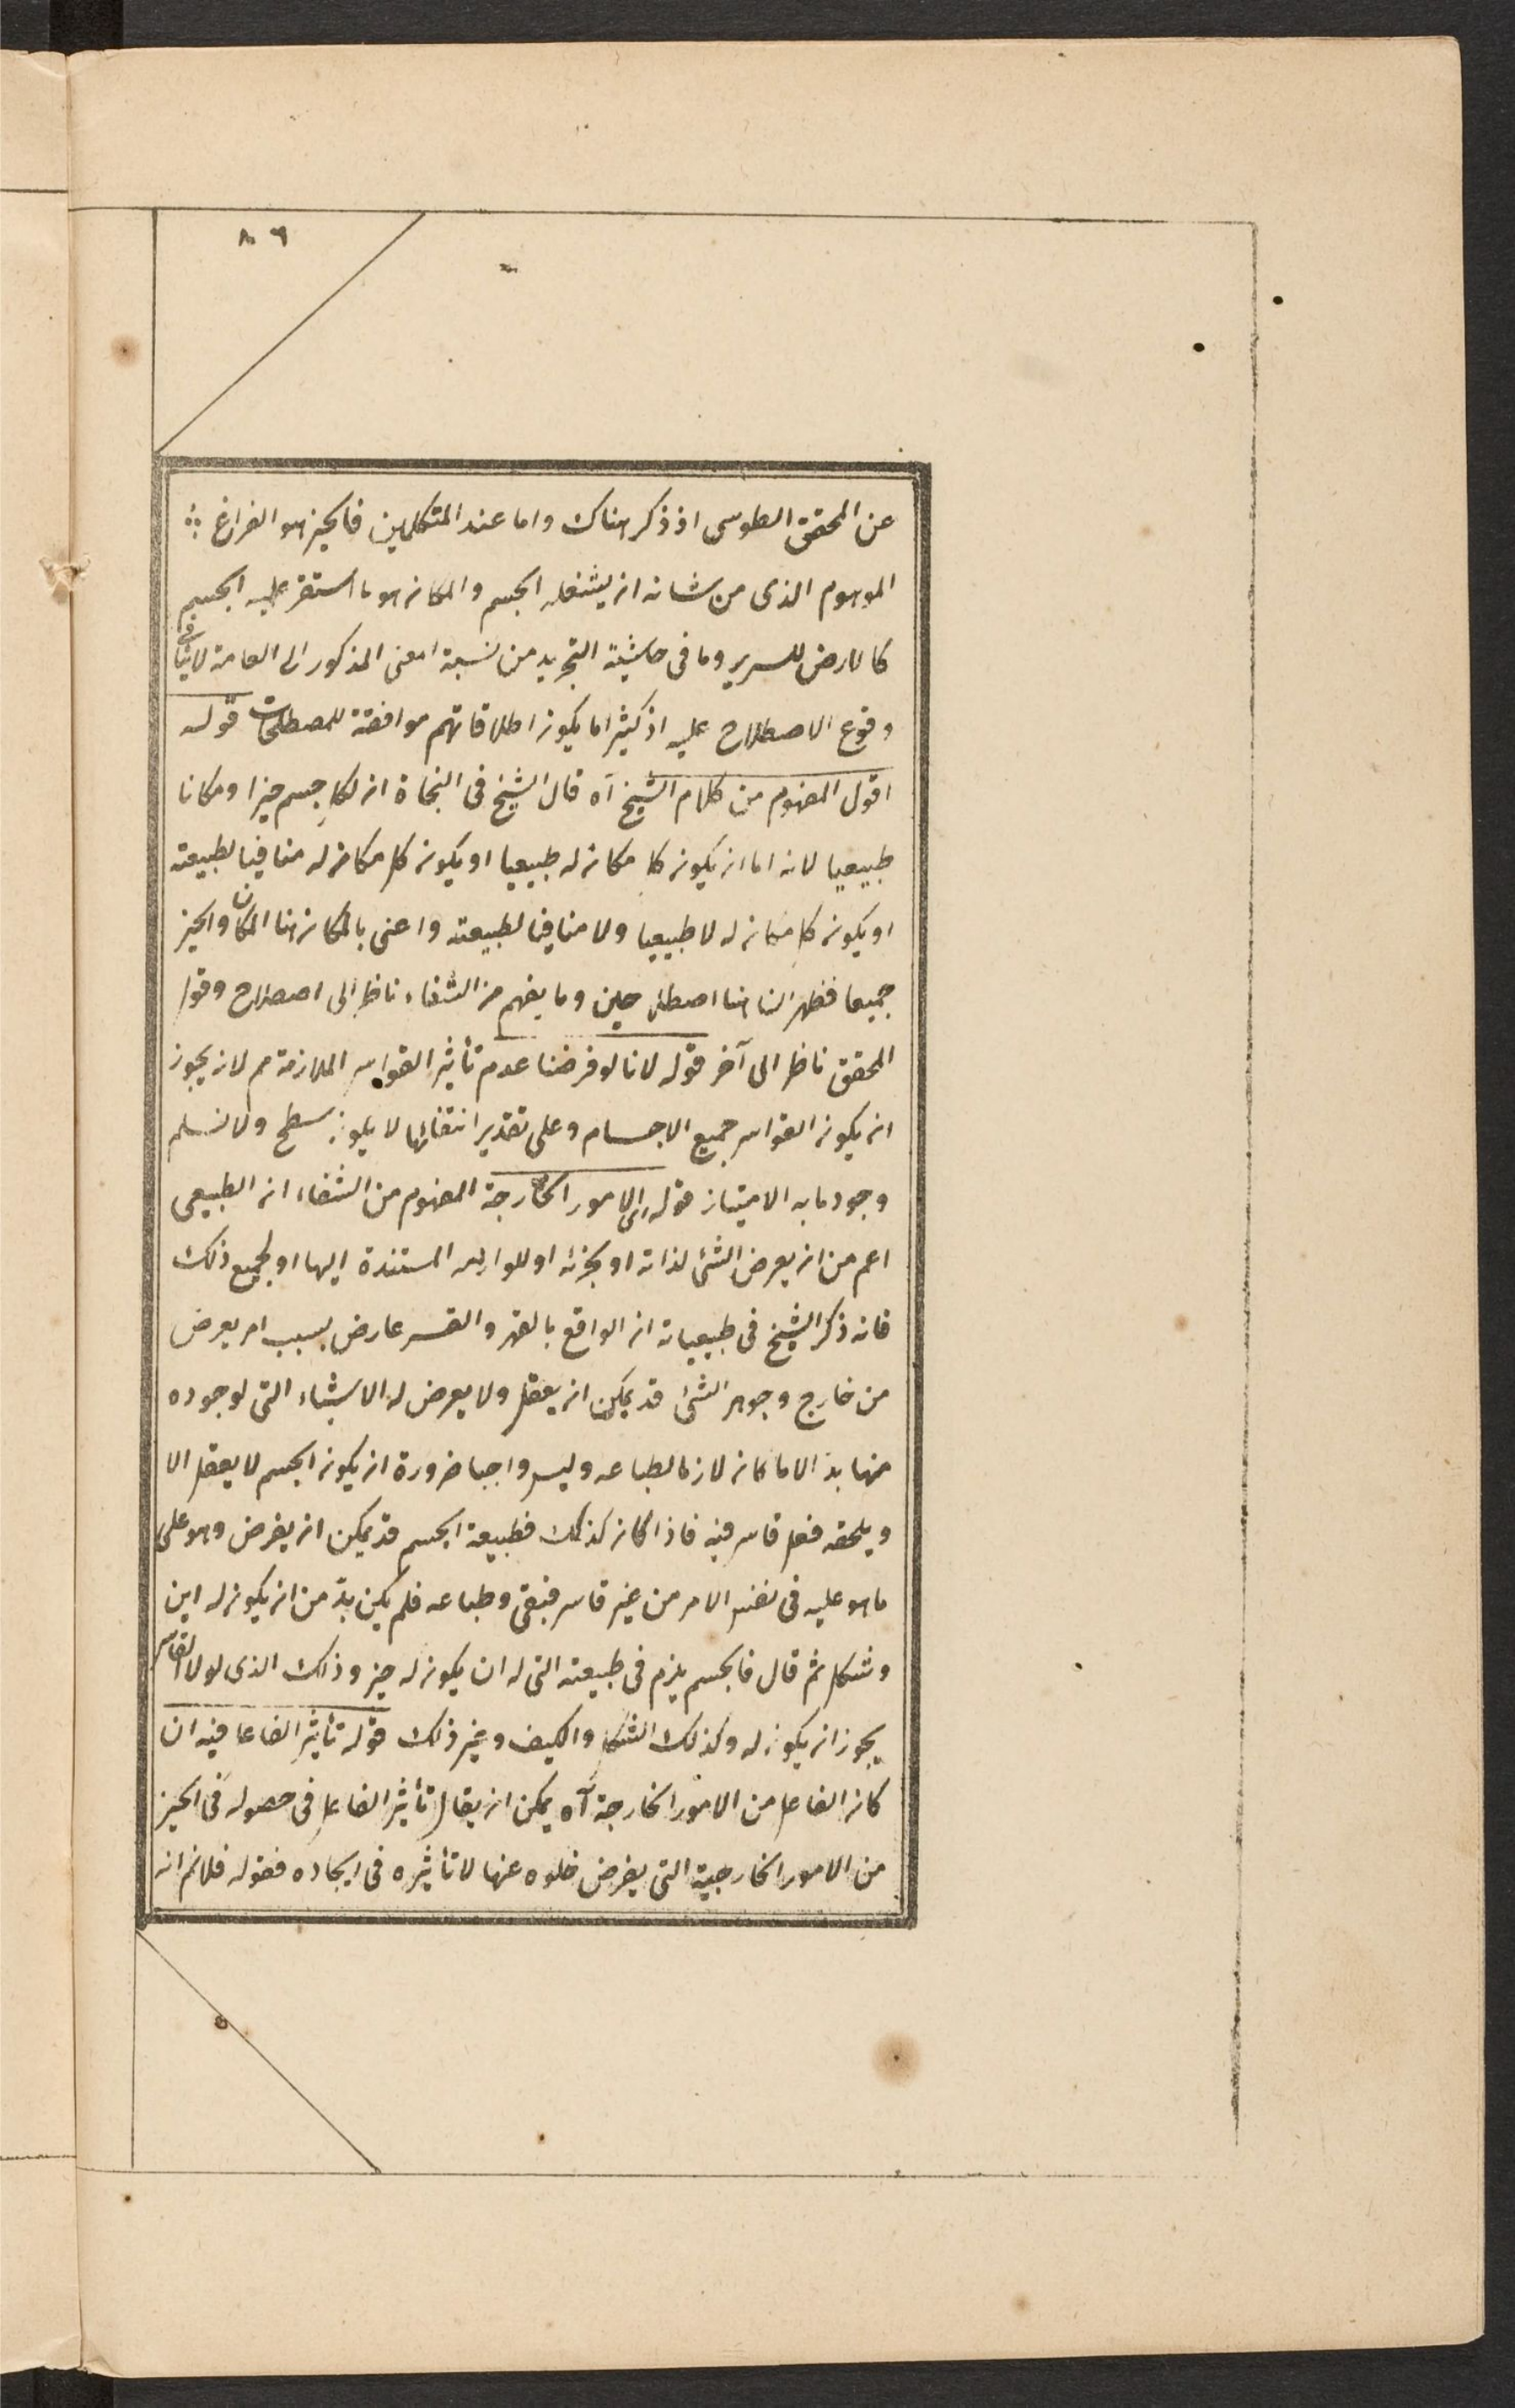 ٨٦
عن المحقق الطوسى اذ ذكر هناك واما عند المتكلمين فالحيز هو الفراغ
الموهوم الذى من شانه ان يشغله الجسم والمكان هو ما استقر عليه الجسم
كالارض للسرير وما فى حاشية التجريد من نسبة المعنى المذكور الى العامة لا ينافى
وقوع الاصطلاح عليه اذ كثيرا ما يكون اطلاقاتهم موافقة للمصطلحات قوله
اقول المفهوم من كلام الشيخ آه قال الشيخ فى النجاة ان لكل جسم حيزا ومكانا
طبيعيا لانه اما ان يكون كل مكان له طبيعيا او يكون كل مكان له منافيا لطبيعته
او يكون كل مكان له لا طبيعيا ولا منافيا لطبيعته واعنى بالمكان هنا المكان والحيز
جميعا فظهر ان هنا اصطلاحين وما يفهم من الشفاء ناظر الى اصطلاح وقول
المحقق ناظر الى آخر قوله لانا لو فرضنا عدم تأثير القواسر الملازمة مم لان يجوز
ان يكون القواسر جميع الاجسام وعلى تقدير انتفائها لا يكون سطح ولا نسلم
وجود ما به الامتياز قوله الى الامور الخارجة المفهوم من الشفاء ان الطبيعى
اعم من ان يعرض الشئ لذاته او بجزئه او للوازمه المستندة اليها او لجميع ذلك
فانه ذكر الشيخ فى طبيعياته ان الواقع بالقهر والقسر عارض بسبب امر يعرض
من خارج وجوهر الشئ قد يمكن ان يعقل ولا يعرض له الاشياء التى لوجوده
منها بد الا ما كان لازما لطباعه وليس واجبا ضرورة ان يكون الجسم لا يعقل الا
ويلحقه فعل قاسر فيه فاذا كان كذلك فطبيعة الجسم قد يمكن ان يفرض وهو على
ما هو عليه فى نفس الامر من غير قاسر فبقى وطباعه فلم يكن بدّ من ان يكون له اين
وشكل ثم قال فالجسم يلزم فى طبيعته التى له ان يكون له حيز وذلك الذى لولا القاسر
يجوز ان يكون له وكذلك الشكل والكيف وغير ذلك قوله تأثير الفاعل فيه ان
كان الفاعل من الامور الخارجة آه يمكن ان يقال تأثير الفاعل فى حصوله فى الحيز
من الامور الخارجية التى يفرض خلوه عنها لا تأثيره فى ايجاده فقوله فلانم انه